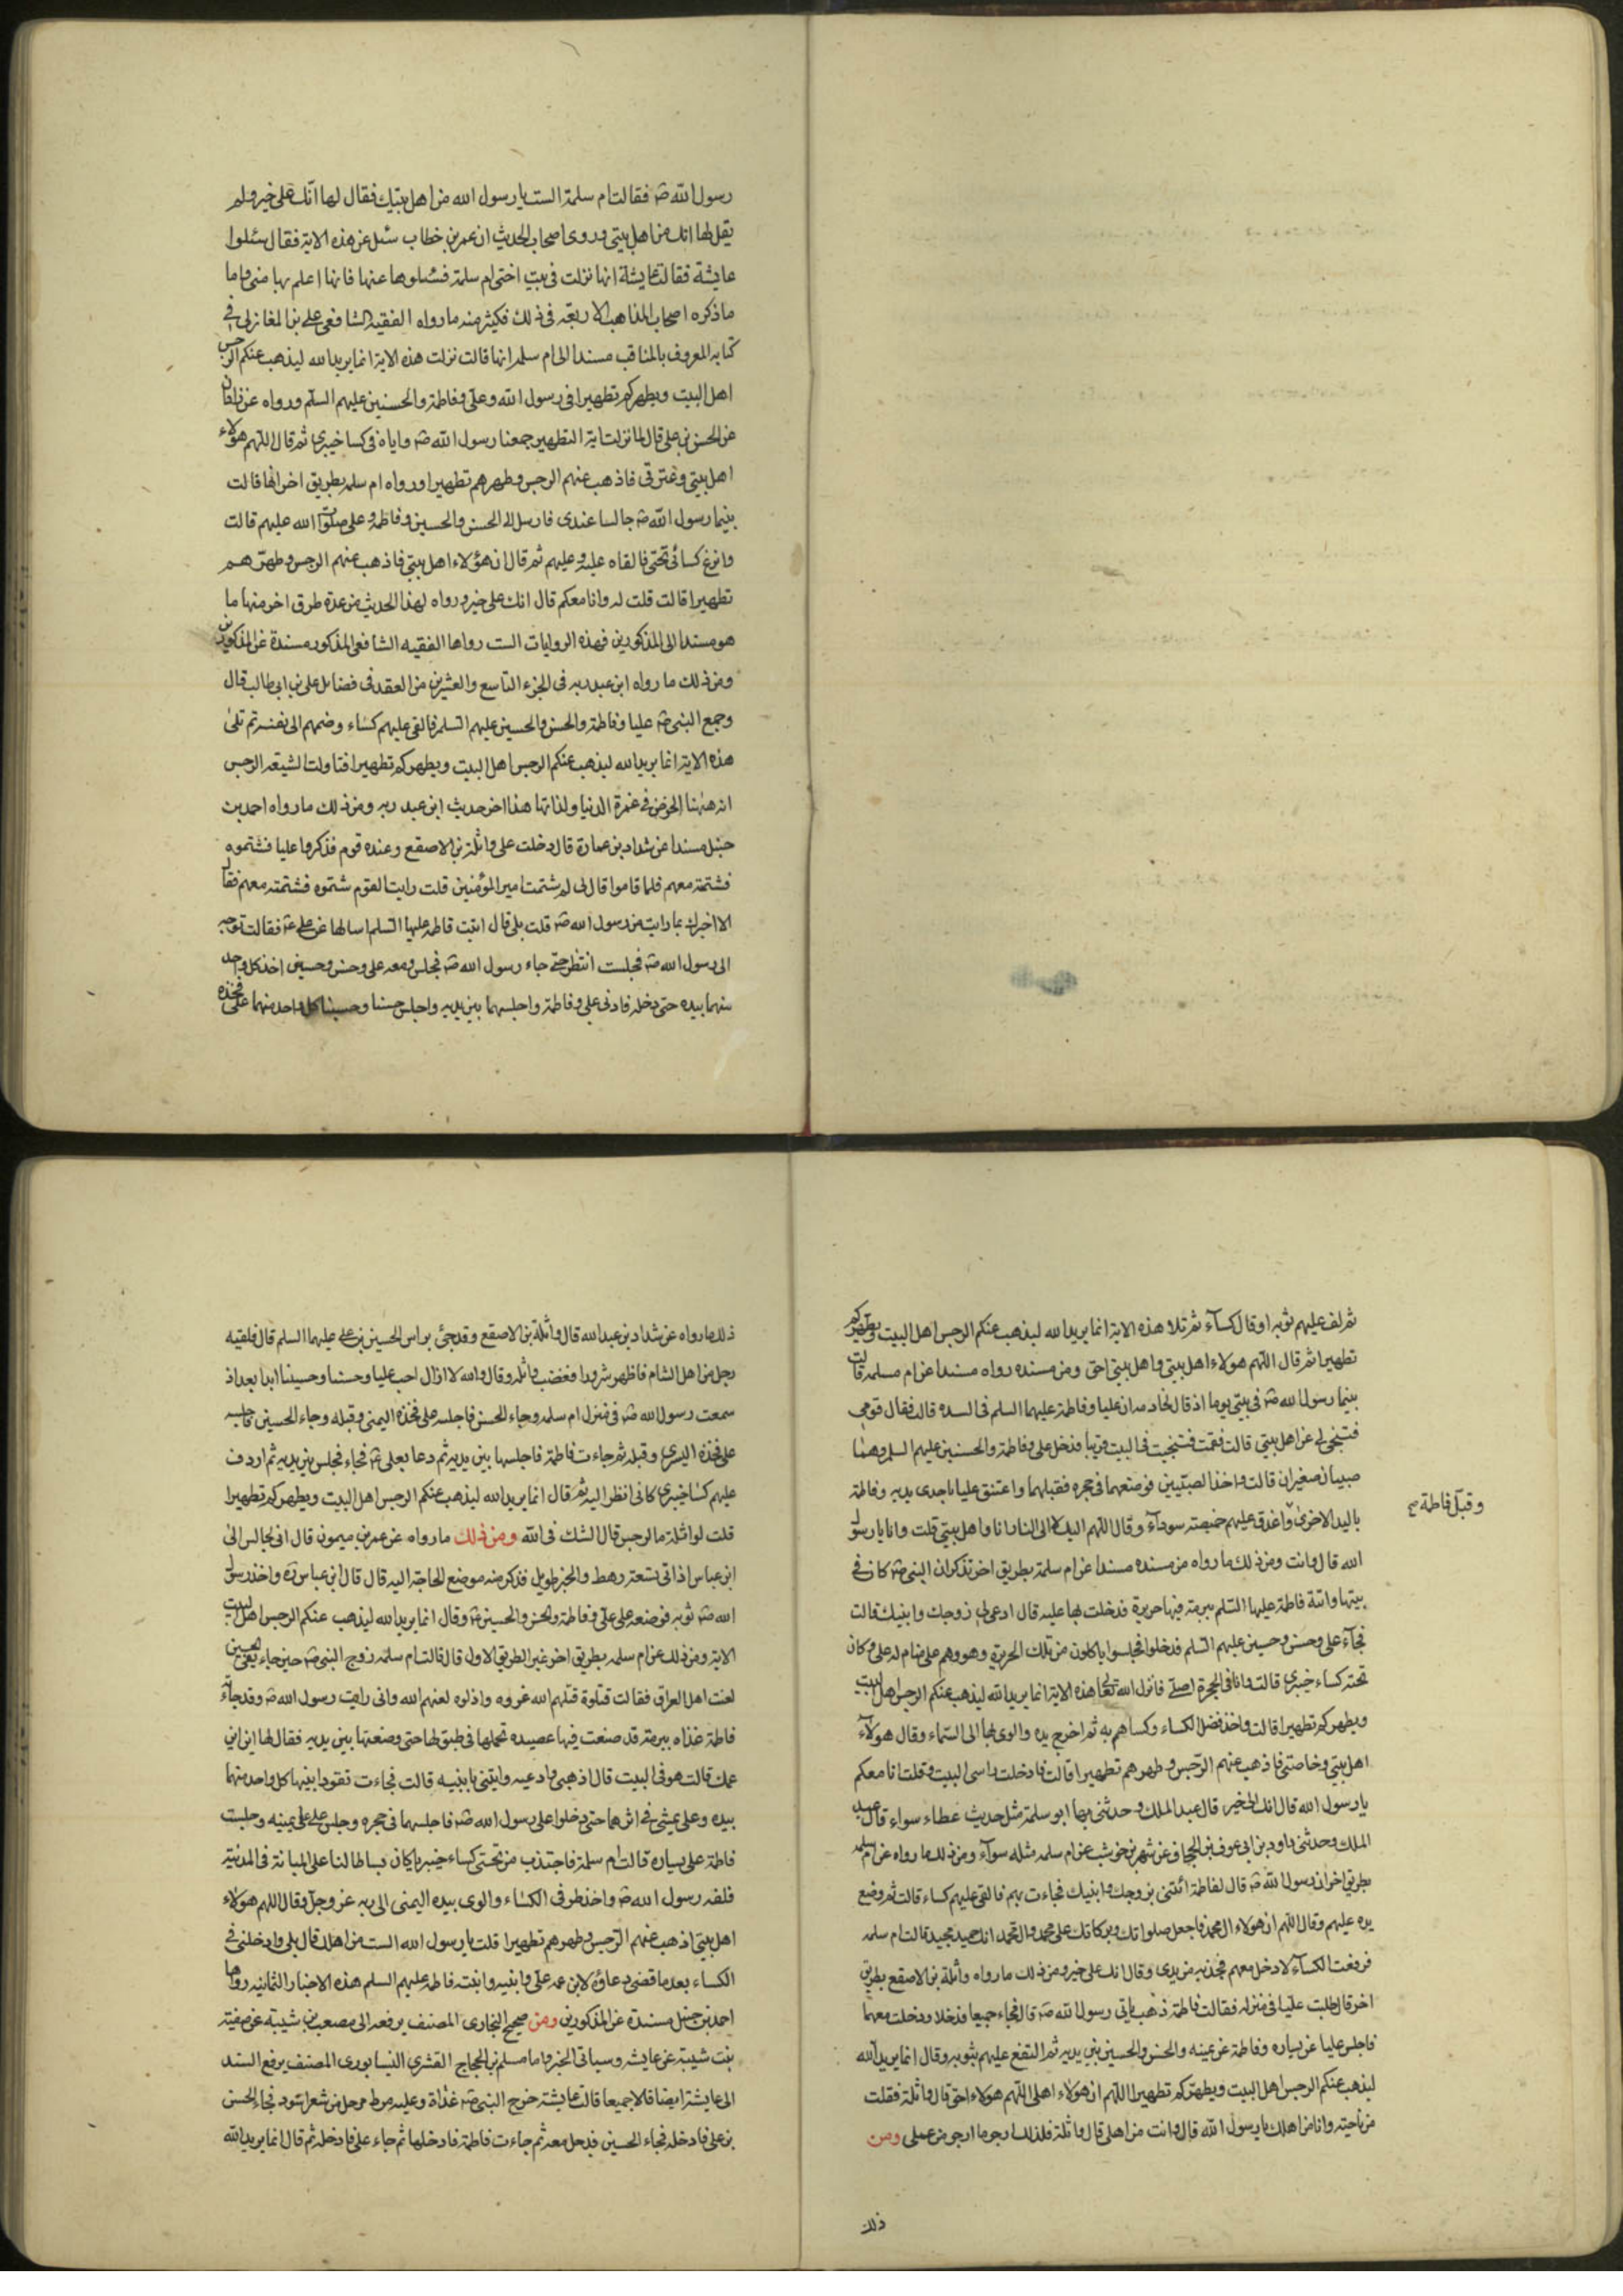 رسول الله ص فقالت ام سلمة الست يا رسول الله من اهل بيتك فقال لها انّك على خير ولم
يقل لها انك من اهل بيتى وروى اصحاب الحديث ان عمر بن خطاب سئل عن هذه الاية فقال سئلوا
عايشة فقالت عايشة انها نزلت فى بيت اختى ام سلمة فسئلوها عنها فانها اعلم بها منى واما
ما ذكره اصحاب المذاهب الاربعة فى ذلك فكثير منه ما رواه الفقيه الشافعى على بن المغازلى فى
كتابه المعروف بالمناقب مسندا الى ام سلمه انها قالت نزلت هذه الاية انما يريد الله ليذهب عنكم الرجس
اهل البيت ويطهركم تطهيرا فى رسول الله وعلى وفاطمة والحسنين عليهم السلم ورواه عن زاذان
عن الحسن بن على قال لما نزلت اية التطهير جمعنا رسول الله ص واياه فى كسا خيبرى ثم قال اللهم هؤلاء
اهل بيتى وعترتى فاذهب عنهم الرجس وطهرهم تطهيرا ورواه ام سلمه بطريق اخر انها قالت
بينما رسول الله ص جالسا عندى فارسل الى الحسن والحسين وفاطمة وعلى صلوات الله عليهم قالت
وانزع كسائى تحتى فالقاه عليه وعليهم ثم قال ان هؤلاء اهل بيتى فاذهب عنهم الرجس وطهّرهم
تطهيرا قالت قلت له وانا معكم قال انك على خير ورواه لهذا الحديث من عدة طرق اخر منها ما
هو مسندا الى المذكورين فهذه الروايات الست رواها الفقيه الشافعى المذكور مسندة عن المذكورين
ومن ذلك ما رواه ابن عبد ربه فى الجزء التاسع والعشرين من العقد فى فضائل على بن ابى طالب قال
وجمع النبى ص عليا وفاطمة والحسن والحسين عليهم السلم فالقى عليهم كساء وضمهم الى نفسه ثم تلى
هذه الاية انما يريد الله ليذهب عنكم الرجس اهل البيت ويطهركم تطهيرا فتاولت الشيعة الرجس
انه ههنا الخوض فى غمرة الدنيا ولذاتها هذا اخر حديث ابن عبد ربه ومن ذلك ما رواه احمد بن
حنبل مسندا عن شداد بن عمارة قال دخلت على واثلة بن الاصقع وعنده قوم فذكروا عليا فشتموه
فشتمته معهم فلما قاموا قال لى لم شتمت امير المؤمنين قلت رايت القوم شتموه فشتمته معهم فقال
الا اخبرك بما رايت من رسول الله ص قلت بلى قال اتيت فاطمة عليها السلم اسالها عن على ع فقالت توجه
الى رسول الله ص فجلست انتظر حتى جاء رسول الله ص فجلس ومعه على وحسن وحسين اخذ كل واحد
منهما بيده حتى دخل فادنى على وفاطمة واجلسهما بين يديه واجلس حسنا وحسينا كل واحد منهما على فخذه
ثم لف عليهم ثوبه او قال كساء ثم تلا هذه الاية انما يريد الله ليذهب عنكم الرجس اهل البيت ويطهركم
تطهيرا ثم قال اللهم هولاء اهل بيتى واهل بيتى احق ومن مسنده رواه مسندا عن ام مسلمه قالت
بينما رسول الله ص فى بيتى يوما اذ قال الخادمه ان عليا وفاطمة عليهما السلم فى السده قالت فقال قومى
فتنحى لى عن اهل بيتى قالت فقمت فتنحيت فى البيت قريبا فدخل على وفاطمة والحسنين عليهم السلم وهما
صبيان صغيران قالت واخذ الصبيين فوضعهما فى حجره فقبلهما واعتنق عليا باحدى يديه وفاطمة
باليد الاخرى واغدق عليهم خميصة سوداء وقال اللهم اليك لا الى النار انا واهل بيتى قلت وانا يا رسول
وقبل فاطمة صح
الله قال وانت ومن ذلك ما رواه من مسنده مسندا عن ام سلمة بطريق اخر تذكر ان النبى ص كان فى
بيتها واتته فاطمة عليها السلم ببرمة فيها حريرة فدخلت بها عليه قال ادعى لى زوجك وابنيك قالت
فجاء على وحسن وحسين عليهم السلم فدخلوا فجلسوا ياكلون من تلك الحريرة وهو وهم على منام له على وكان
تحته كساء خيبرى قالت وانا فى الحجرة اصلى فانزل الله تعالى هذه الاية انما يريد الله ليذهب عنكم الرجس اهل البيت
ويطهركم تطهيرا قالت واخذ فضل الكساء وكساهم به ثم اخرج يده والوى بها الى السماء وقال هولاء
اهل بيتى وخاصتى فاذهب عنهم الرجس وطهرهم تطهيرا قالت فادخلت راسى البيت وقلت انا معكم
يا رسول الله قال انك الى خير قال عبد الملك وحدثنى بها ابو سلمة مثل حديث عطاء سواء قال عبد
الملك وحدثنى داود بن ابى عوف بن الحجاف عن شهر بن حوشب عن ام سلمه مثله سواء ومن ذلك ما رواه عن ام سلمه
بطريق اخر ان رسول الله ص قال لفاطمة ائتنى بزوجك وابنيك فجاءت بهم فالقى عليهم كساء قالت ثم وضع
يده عليهم وقال اللهم ان هولاء ال محمد فاجعل صلواتك وبركاتك على محمد وال محمد انك حميد مجيد قالت ام سلمه
فرفعت الكساء لادخل معهم فجذبه من يدى وقال انك على خير ومن ذلك ما رواه واثلة بن الاصقع بطريق
اخر قال طلبت عليا فى منزله فقالت فاطمة ذهب ياتى رسول الله ص قال فجاء جميعا فدخلا ودخلت معهما
فاجلس عليا عن يساره وفاطمة عن يمينه والحسن والحسين بين يديه ثم التفع عليهم بثوبه وقال انما يريد الله
ليذهب عنكم الرجس اهل البيت ويطهركم تطهيرا اللهم ان هولاء اهلى اللهم هولاء احق قال واثلة فقلت
من ناحية وانا من اهلك يا رسول الله قال وانت من اهلى قال واثلة فلذلك ارجو ما ارجو من عملى ومن
ذلك
ذلك ما رواه عن شداد بن عبد الله قال واثلة بن الاصقع وقد جئ براس الحسين بن على عليهما السلم قال فلقيه
رجل من اهل الشام فاظهر سرورا فغضب واثلة وقال والله لا ازال احب عليا وحسنا وحسينا ابدا بعد اذ
سمعت رسول الله ص فى منزل ام سلمه وجاء الحسن فاجلسه على فخذه اليمنى وقبله وجاء الحسين فاجلسه
على فخذه اليسرى وقبله ثم جاءت فاطمة فاجلسها بين يديه ثم دعا بعلى ع فجاء فجلس بين يديه ثم اردف
عليهم كسا خيبرى كانى انظر اليه ثم قال انما يريد الله ليذهب عنكم الرجس اهل البيت ويطهركم تطهيرا
قلت لواثلة ما الرجس قال الشك فى الله ومن ذلك ما رواه عن عمر بن ميمون قال انى لجالس الى
ابن عباس اذ اتى بتسعة رهط والخبر طويل فذكر منه موضع الحاجة اليه قال قال ابن عباس رة واخذ رسول
الله ص ثوبه فوضعه على على وفاطمة والحسن والحسين ع وقال انما يريد الله ليذهب عنكم الرجس اهل البيت
الاية ومن ذلك عن ام سلمه بطريق اخر غير الطريق الاول قال قالت ام سلمة زوج النبى ص حين جاء نعى الحسين
لعنت اهل العراق فقالت قتلوه قتلهم الله غروه واذلوه لعنهم الله وانى رايت رسول الله ص وقد جاءه
فاطمة غذاه ببرمة قد صنعت فيها عصيده تحملها فى طبق لها حتى وضعتها بين يديه فقال لها اين ابن
عمك قالت هو فى البيت قال اذهبى وادعيه وايتنى بابنيه قالت فجاءت تقود ابنيها كل واحد منهما
بيده وعلى يمشى فى اثرهما حتى دخلوا على رسول الله ص فاجلسهما فى حجره وجلس على على يمينه وجلست
فاطمة على يساره قالت ام سلمة فاجتذب من تحتى كساء خيبريا كان بساطا لنا على المنامة فى المدينة
فلفه رسول الله ص واخذ طرفى الكساء والوى بيده اليمنى الى ربه عز وجل وقال اللهم هولاء
اهل بيتى اذهب عنهم الرجس وطهرهم تطهيرا قلت يا رسول الله الست من اهلك قال بلى وادخلنى فى
الكساء بعد ما قضى دعاؤه لابن عمه على وابنيه وابنته فاطمة عليهم السلم هذه الاخبار الثمانيه رواها
احمد بن حنبل مسندة عن المذكورين ومن صحيح البخارى المصنف يرفعه الى مصعب بن شيبة عن صفية
بنت شيبة عن عايشه وسياتى الخبر واما مسلم بن الحجاج القشرى النيسابورى المصنف يرفع السند
الى عايشة ايضا قالا جميعا قالت عايشة خرج النبى ص غداة وعليه مرط مرحل من شعر اسود فجاء الحسن
بن على فادخله فجاء الحسين فدخل معه ثم جاءت فاطمة فادخلها ثم جاء على فادخله ثم قال انما يريد الله